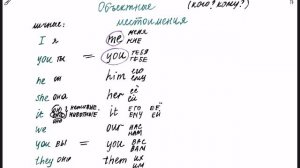 Объектные (кого? кому?)
личные: местоимения
I я me меня мне
you ты = you тебя тебе
he он him его ему
she она her её ей
it он она оно неживые животные it его её ему ей
we our нас нам
you вы = you вас вам
they они them их им